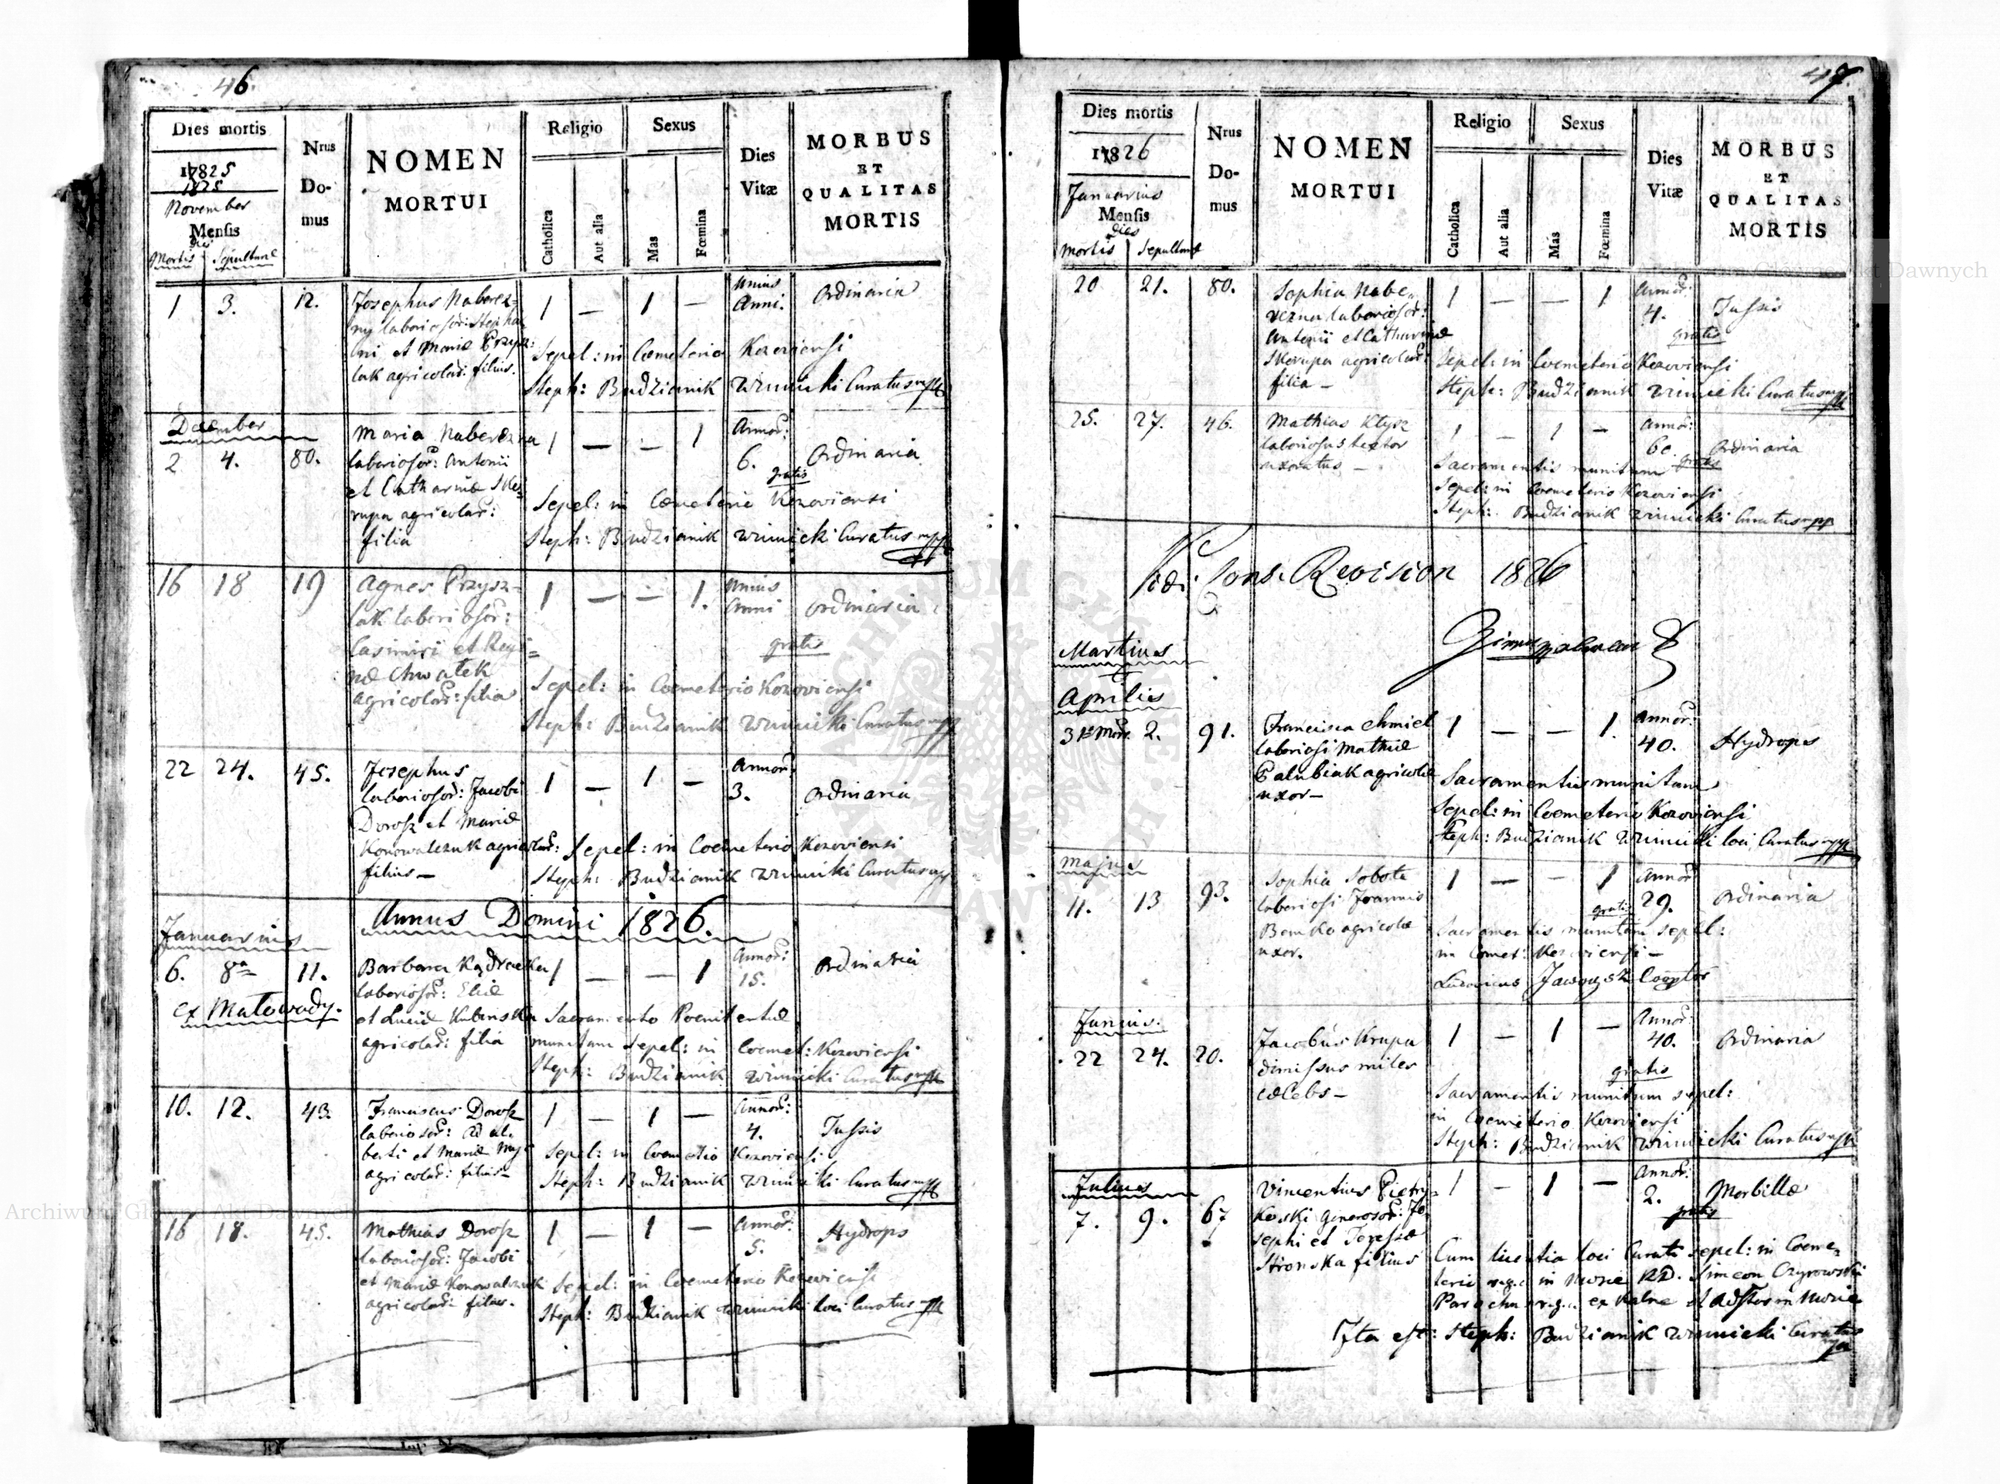 46.
Dies mortis
Nrus
Do-
mus
NOMEN
MORTUI
Religio
Sexus
Catholica
Aut alia
Mas
Fœmina
Dies
Vitæ
MORBUS
ET
QUALITAS
MORTIS
1825
1825
November
Mensis
dies
Mortis Sepulturæ
1 3. 12. Josephus Naberez=
ny laboriosor: Stepha
ni et Mariæ Przysz:
lak agricolar: filius.
1 — 1 —
unius
Anni.
Ordinaria
Sepel: in Coemeterio Kozoviensi
Steph: Budzianik Winnicki Curatus mpp
December
2. 4. 80. Maria Naberezna
laboriosor: Antonii
et Catharinæ Sko
rupa agricolar:
filia
1 — — 1
Annor:
6.
gratis
Ordinaria
Sepel: in Coemeterio Kozoviensi
Steph: Budzianik Winnicki Curatus mpp
16 18 19 Agnes Przysz=
lak laboriosor:
Casimiri et Regi=
næ Chwałek
agricolar: filia
1 — — 1.
unius
anni
ordinaria
gratis
Sepel: in Coemeterio Kozoviensi
Steph: Budzianik Winnicki Curatus mpp
22 24. 45. Josephus
laboriosor: Jacobi
Dorosz et Mariæ
Konowalczuk agricolar:
filius —
1 — 1 —
Annor:
3.
Ordinaria
Sepel: in Coemeterio Kozoviensi
Steph: Budzianik Winnicki Curatus mpp
Annus Domini 1826.
Januarius
6. 8va 11.
ex Małowody.
Barbara
laboriosor: Eliæ
et Luciæ Kubinska
agricolar: filia
1 — — 1
Annor:
15.
Ordinaria
Sacramento Poenitentiæ
munitam sepel: in Coemet: Kozoviensi
Steph: Budzianik Winnicki Curatus mpp
10. 12. 43. Franciscus Dorosz
laboriosor: Adal
berti et Mariæ
agricolar: filius —
1 — 1 —
Annor:
4.
Tussis
Sepel: in Coemetio Kozoviensi
Steph: Budzianik Winnicki Curatus mpp
16 18. 45. Mathias Dorosz
laboriosor: Jacobi
et Mariæ Konowalczuk
agricolar: filius.
1 — 1 —
Annor:
5.
Hydrops
Sepel: in Coemeterio Kozoviensi
Steph: Budzianik Winnicki loci Curatus mpp
47.
Dies mortis
Nrus
Do-
mus
NOMEN
MORTUI
Religio
Sexus
Catholica
Aut alia
Mas
Fœmina
Dies
Vitæ
MORBUS
ET
QUALITAS
MORTIS
1826
Januarius
Mensis
dies
Mortis Sepulturæ
20 21. 80. Sophia Nabe=
rezna laboriosor:
Antonii et Catharinæ
Skorupa agricolar:
filia —
1 — — 1
Annor:
4.
gratis
Tussis
Sepel: in Coemeterio Kozoviensi
Steph: Budzianik Winnicki Curatus mpp
25. 27. 46. Mathias Klysz
laboriosus textor
uxoratus —
1 — 1 —
Annor:
60.
gratis
Ordinaria
Sacramentis munitum
Sepel: in Coemeterio Kozoviensi
Steph: Budzianik Winnicki Curatus mpp
Vidi Cons. Revision 1826
Martius
et
Aprilis
31 Mar. 2. 91. Francisca Chmiel
laboriosi Mathiæ
agricolæ
uxor —
1 — — 1.
Annor:
40.
Hydrops
Sacramentis munitam
Sepel: in Coemeterio Kozoviensi
Steph: Budzianik Winnicki loci Curatus mpp
Majus
11. 13 93. Sophia Sobota
laboriosi Joannis
Bomko agricolæ
uxor.
1 — — 1
Annor:
29.
gratis
Ordinaria
Sacramentis munitam sepel:
in Comet: Kozoviensi —
Ludovicus
Junius.
22 24. 20. Jacobus Krupa
dimissus miles
cælebs —
1 — 1 —
Annor:
40.
gratis
Ordinaria
Sacramentis munitum sepel:
in Coemeterio Kozoviensi
Steph: Budzianik Winnicki Curatus mpp
Julius
7. 9. 67 Vincentius Pietry=
kowski Generosor: Jo
sephi et Teressiæ
Stronska filius
1 — 1 —
Annor:
2.
gratis
Morbillæ
Cum licentia loci Curati sepel: in Coeme=
terio r.g.c. in RD. Simeon Ozyrowski
Parochus r.g. ex Kalne
Ita est: Steph: Budzianik Winnicki Curatus
Archiwum Główne Akt Dawnych
Archiwum Główne Akt Dawnych
ARCHIWUM GŁÓWNE AKT DAWNYCH